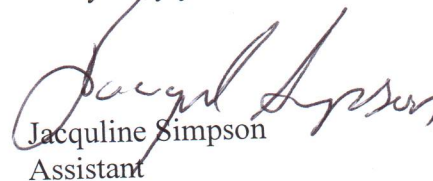 Jacquline Simpson
Jacquline Simpson
Assistant